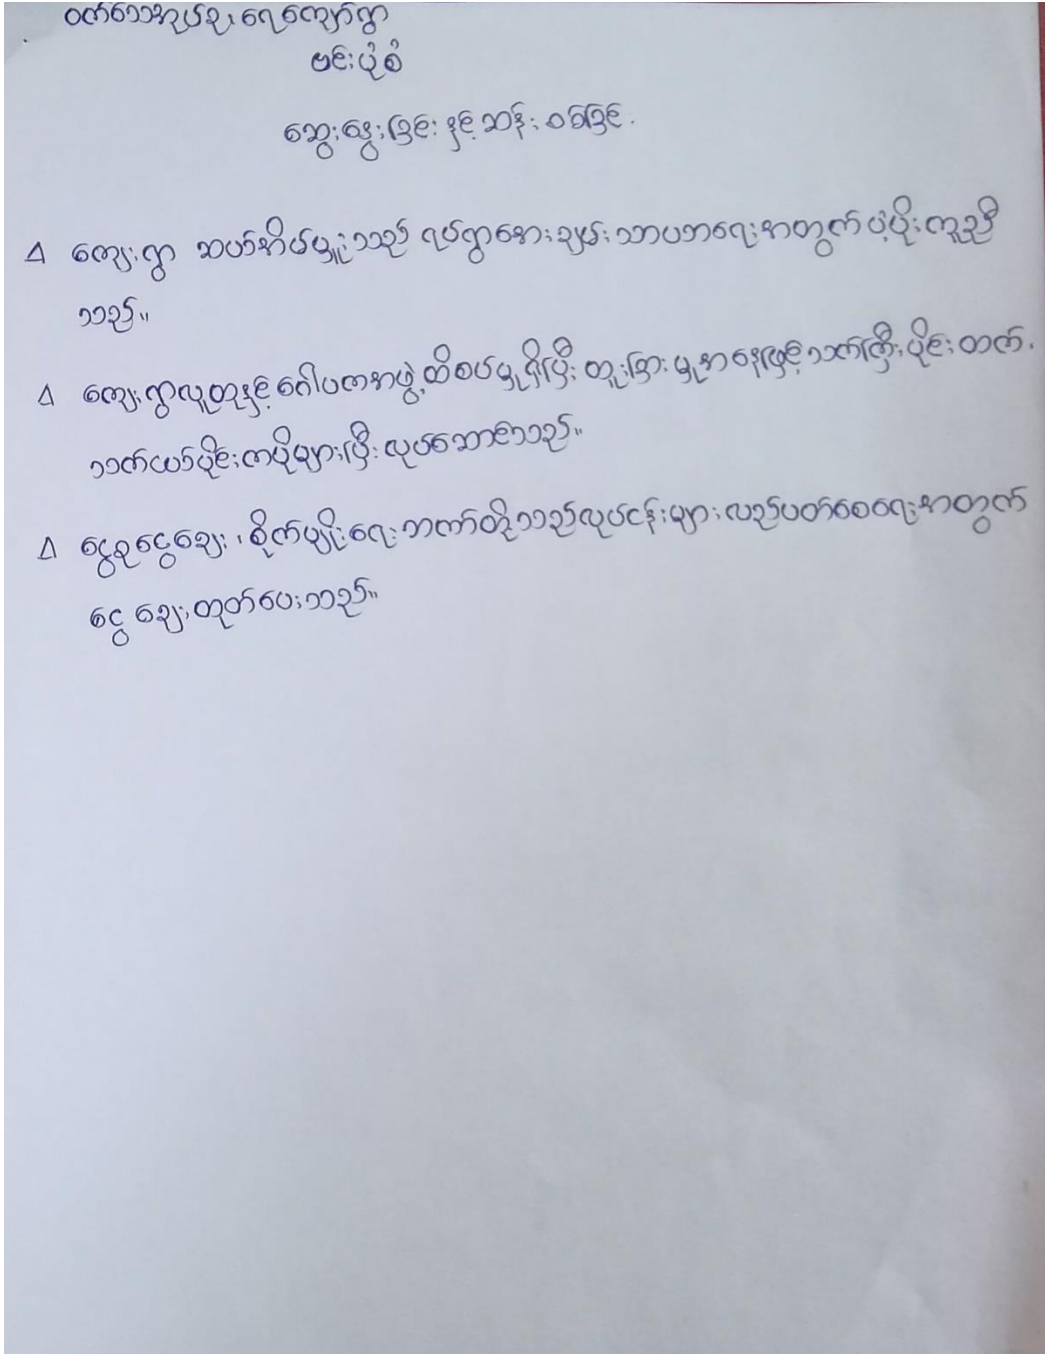 ဝက်သေအုပ်စု၊ ရေကျော်ရွာ
ဗင်းပုံစံ
ဆွေးနွေးခြင်း နှင့် ဆန်းစစ်ခြင်း
Δ ကျေးရွာ ဆယ်အိမ်မှူးသည် ရပ်ရွာအေးချမ်းသာယာရေးအတွက် ပံ့ပိုးကူညီ
သည်။
Δ ကျေးရွာလူထုနှင့် ဂေါပကအဖွဲ့ ထိစပ်မှုရှိပြီး ထူးခြားမှုအနေဖြင့် သက်ကြီးပိုင်းထက်
သက်ငယ်ပိုင်းကပိုများပြီး လုပ်ဆောင်သည်။
Δ ငွေစုငွေချေး၊ စိုက်ပျိုးရေးဘဏ်တို့သည်လုပ်ငန်းများလည်ပတ်စေရေးအတွက်
ငွေချေးထုတ်ပေးသည်။